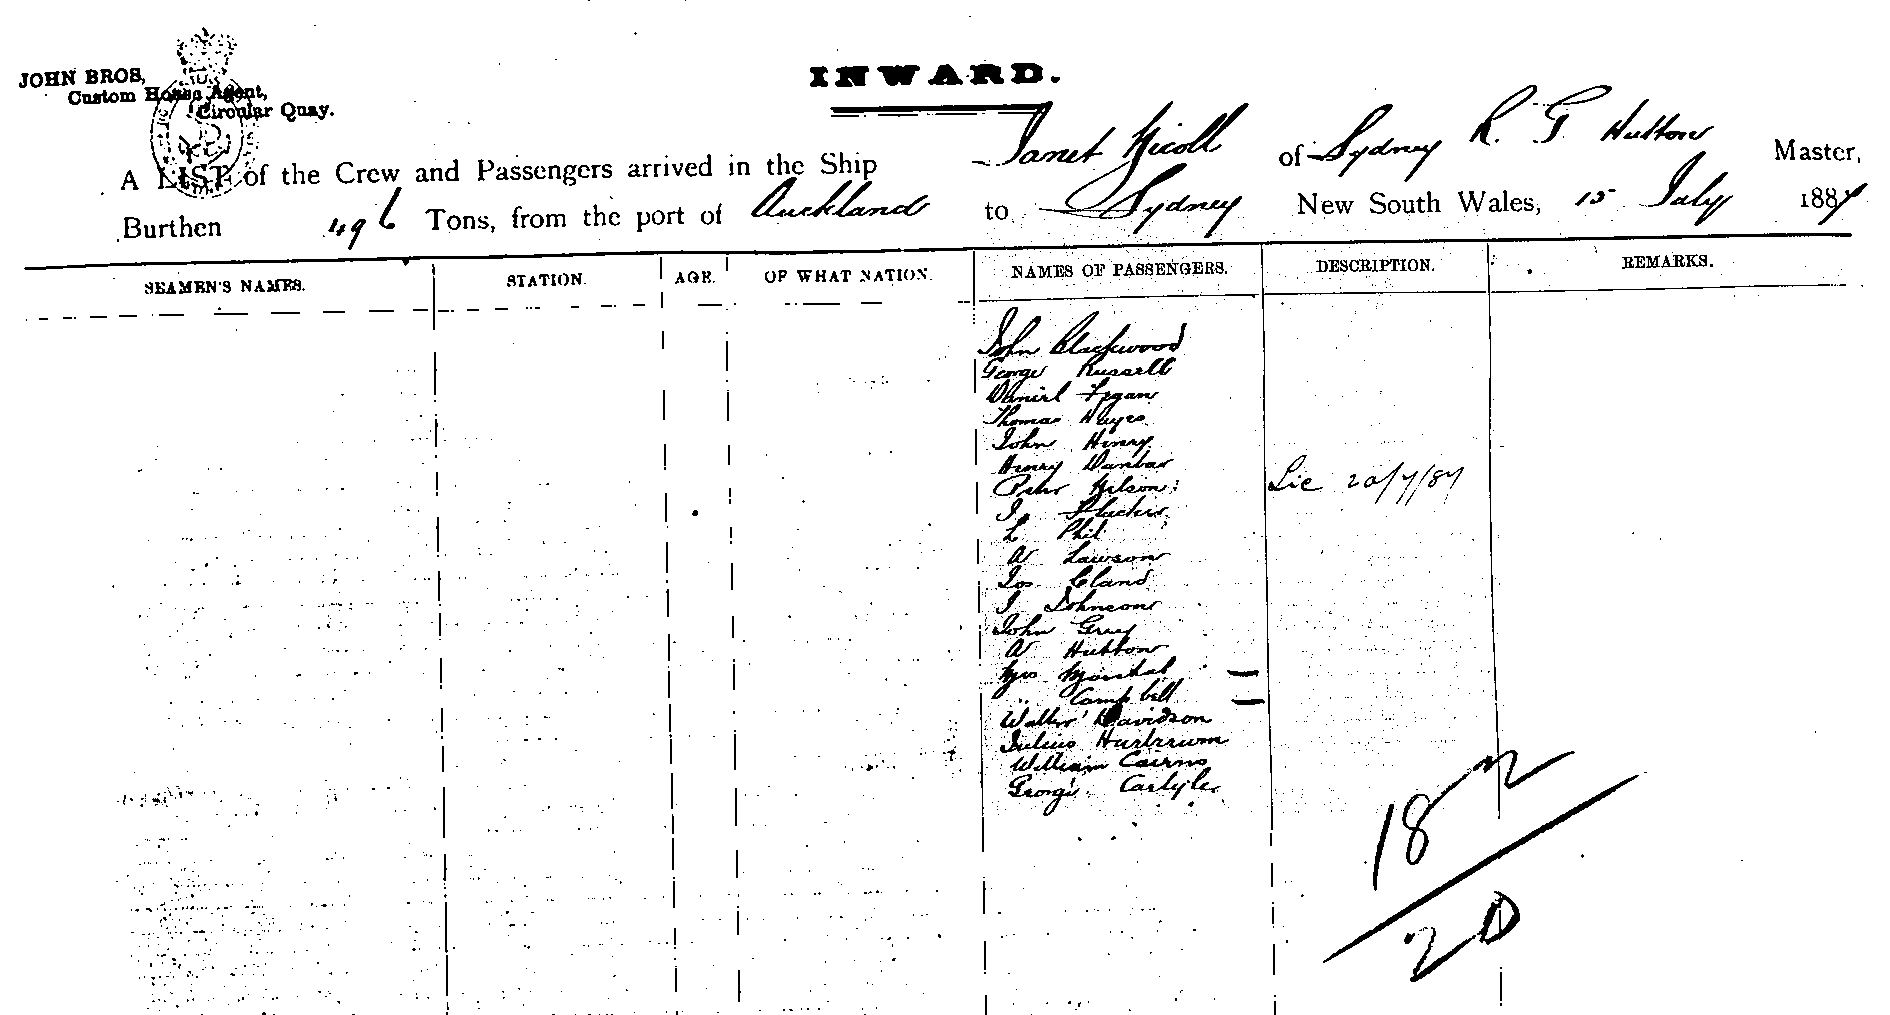 JOHN BROS,
Custom House Agent,
Circular Quay.
INWARD.
A LIST of the Crew and Passengers arrived in the Ship Janet Nicoll of Sydney R. G. Hutton Master,
Burthen 496 Tons, from the port of Auckland to Sydney New South Wales, 15 July 1887
SEAMEN'S NAMES. STATION. AGE. OF WHAT NATION. NAMES OF PASSENGERS. DESCRIPTION. REMARKS.
John Blackwood
George Russell
Daniel Fegan
Thomas Hayes
John Henry
Henry Dunbar
Peter Nilson Lic 20/7/87
J
L Phil
A Lawson
Jos Cland
J Johnson
John Grey
A Hutton
Mrs Marshal —
" Campbell —
Walter Davidson
Julius
William Cairns
George Carlyle
18 2
20